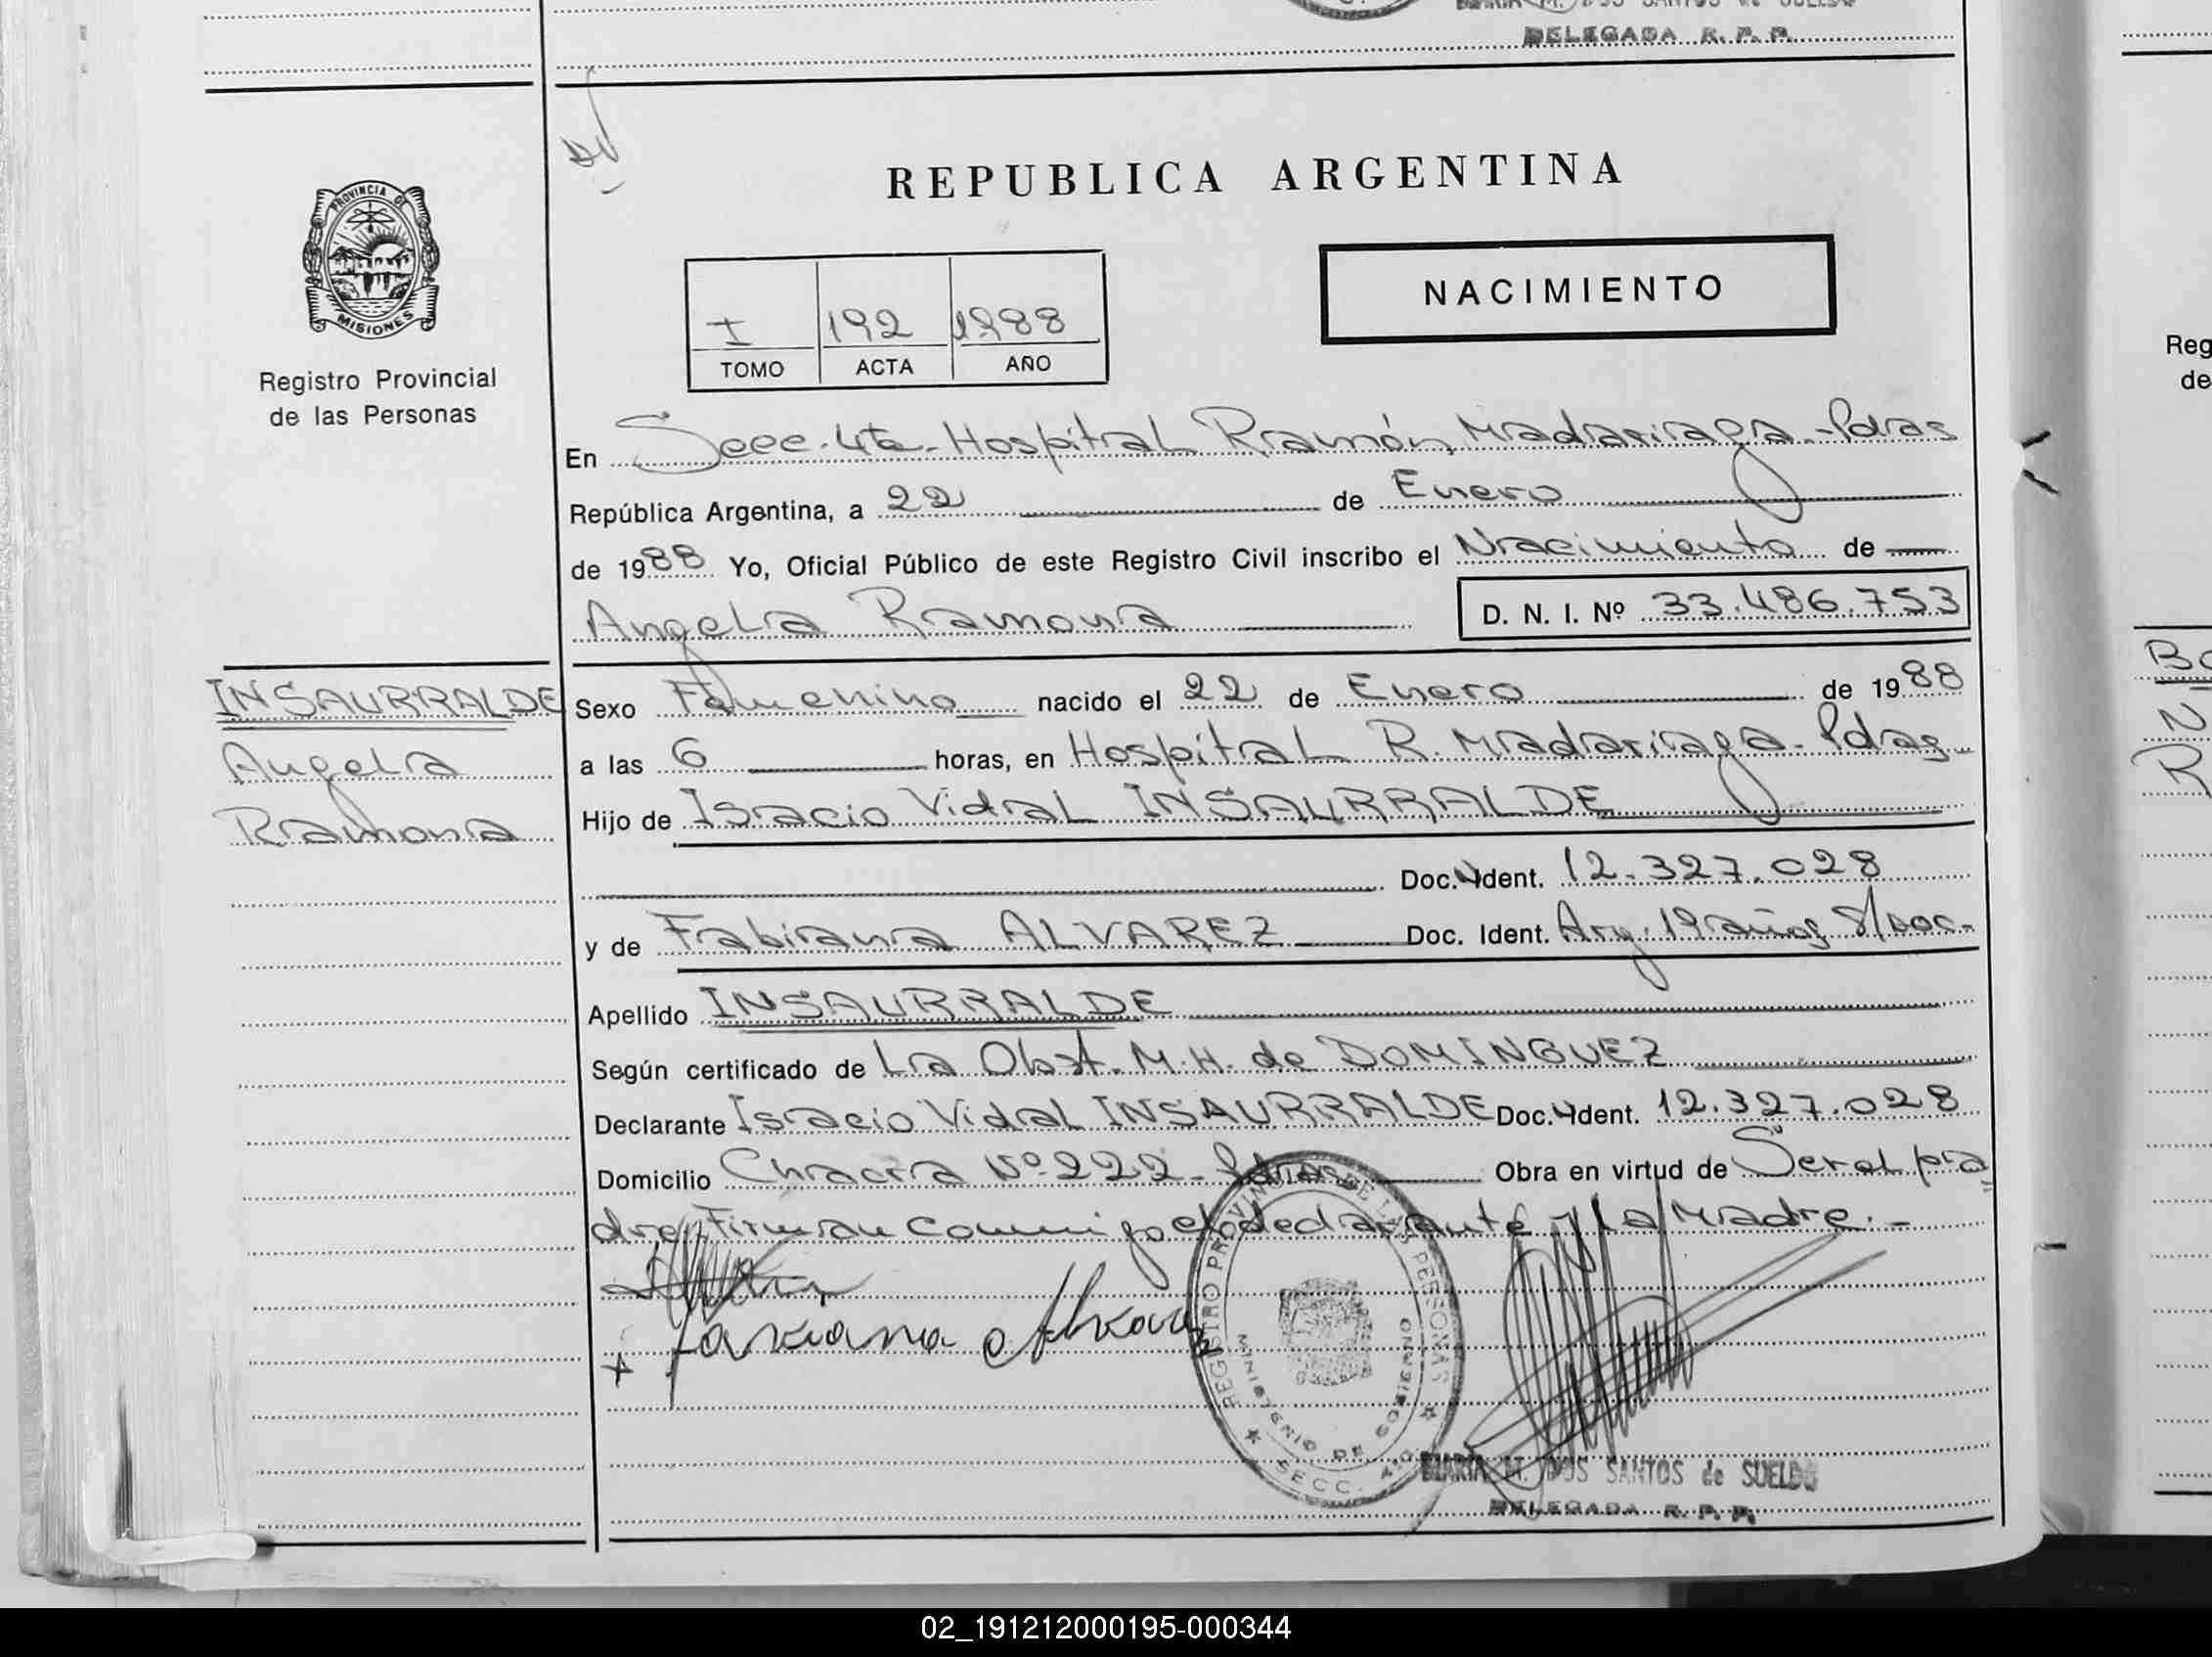 DELEGADA R. P. P.
REPUBLICA ARGENTINA
PROVINCIA DE
MISIONES
Registro Provincial
de las Personas
I 192 1988
TOMO ACTA AÑO
NACIMIENTO
En Secc. 4ta - Hospital Ramón Madariaga - Pdas
República Argentina, a 22 de Enero
de 1988 Yo, Oficial Público de este Registro Civil inscribo el Nacimiento de
Angela Ramona D. N. I. Nº 33.486.753
INSAURRALDE
Angela
Ramona
Sexo Femenino nacido el 22 de Enero de 1988
a las 6 horas, en Hospital R. Madariaga - Pdas
Hijo de Isacio Vidal INSAURRALDE
Doc. Ident. 12.327.028
y de Fabiana ALVAREZ Doc. Ident. Arg. 19 años S/Doc.-
Apellido INSAURRALDE
Según certificado de La Obst. M. H. de DOMINGUEZ
Declarante Isacio Vidal INSAURRALDE Doc. Ident. 12.327.028
Domicilio Chacra Nº 222 - Pdas Obra en virtud de Ser el pa
dre, Firman conmigo el declarante y la Madre.-
REGISTRO PROVINCIAL DE LAS PERSONAS
MINISTERIO DE GOBIERNO
SECC. 4ta
MARIA M. DOS SANTOS de SUELDO
DELEGADA R. P. P.
Reg
de
02_191212000195-000344